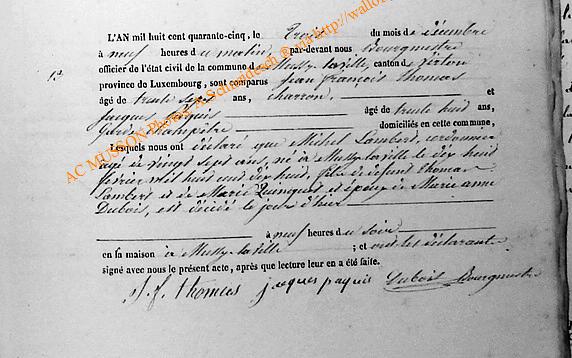 L'AN mil huit cent quarante-cinq, le trois du mois de décembre
à neuf heures du matin, par-devant nous Bourgmestre
officier de l'état civil de la commune de Mussy-la-ville canton de
12
province de Luxembourg, sont comparus jean françois thomas
âgé de trente sept ans, charron, et
jacques paquis âgé de trente huit ans,
garde champêtre domiciliés en cette commune,
Lesquels nous ont déclaré que Michel Lambert, cordonnier
âgé de vingt sept ans, né à Mussy-la-ville le dix huit
février mil huit cent dix huit, fils de défunt thomas
Lambert et de Marie et époux de Marie anne
Dubois, est décédé le jour d'hier
à neuf heures du soir
en sa maison à Mussy-la-ville ; et ont les déclarants
signé avec nous le présent acte, après que lecture leur en a été faite.
J. f. thomas jacques paquis Dubois Bourgmestre
AC MUSSON Photos A.Schmidesch ® via http://wallo